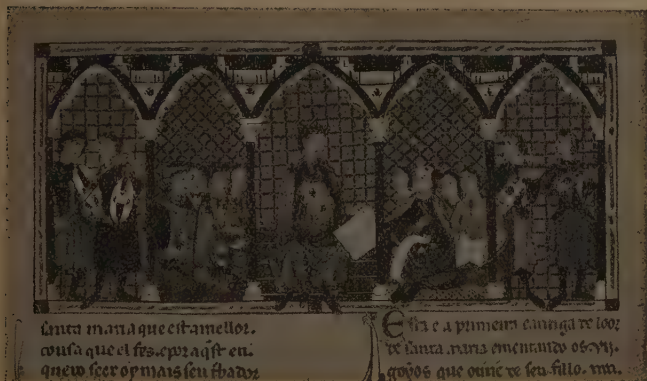 santa maria que est a mellor.
cousa que el fez. e por aqst eu.
quero seer oy mais seu trobador
Esta e a primeira cantiga de loor
de santa maria ementando os .vij.
goyos que ouue de seu fillo.